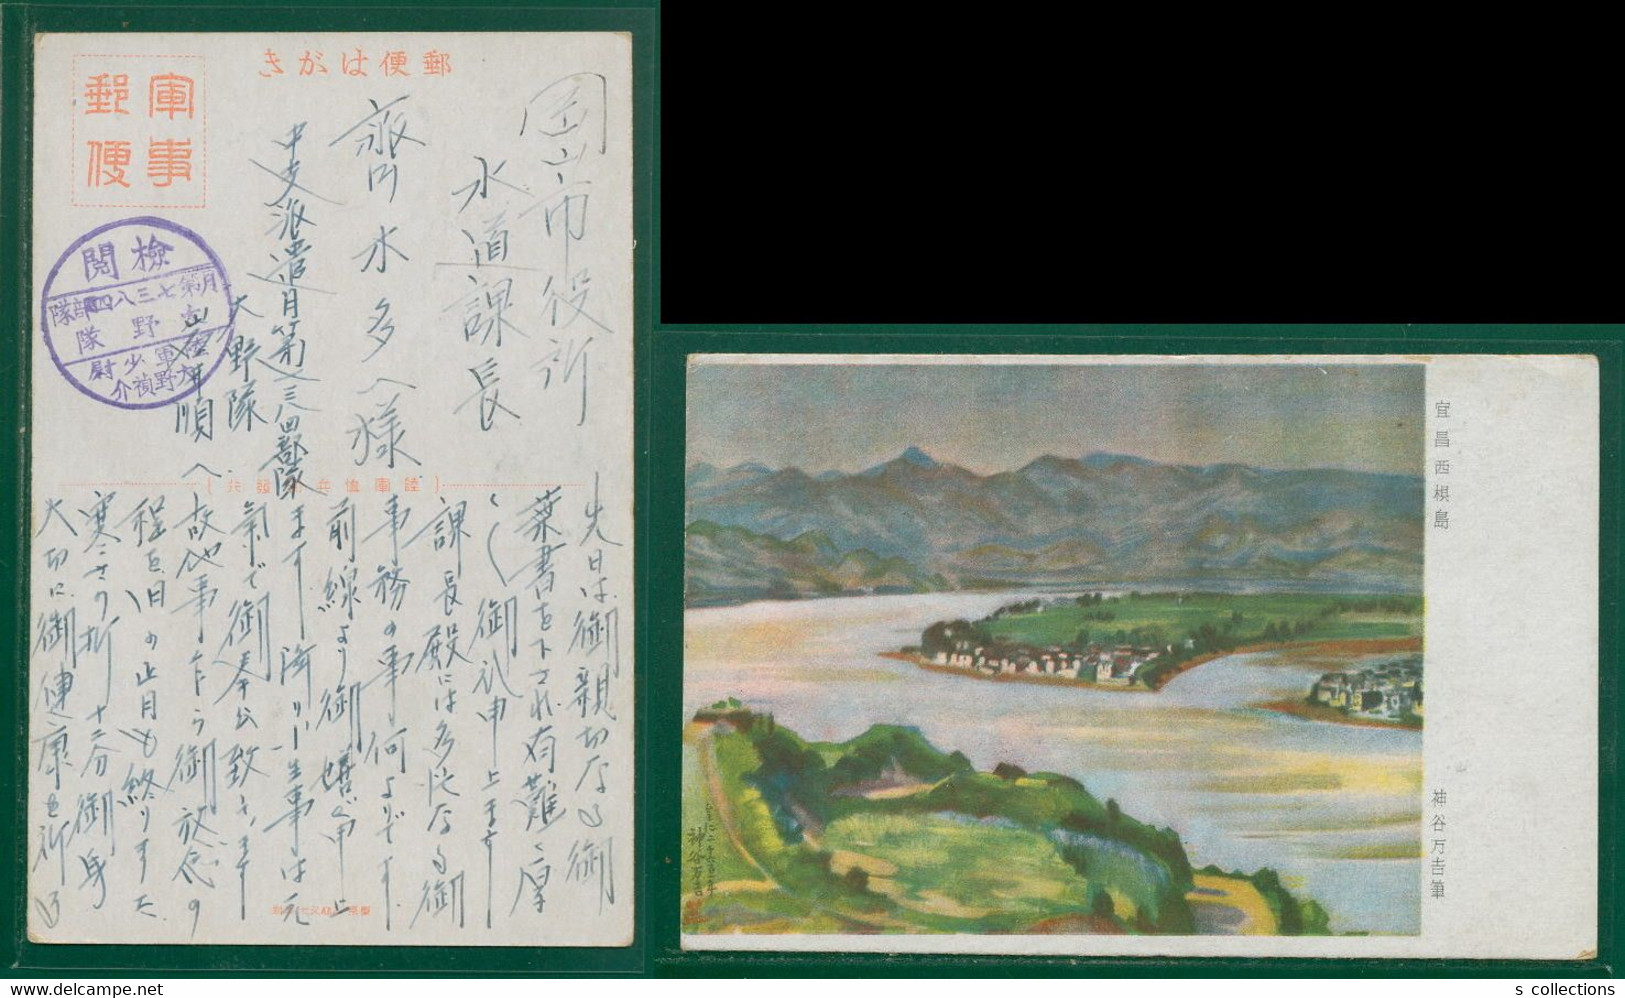 郵便はがき
軍事
郵便
検閲
月第七三八四部隊
大野隊
陸軍少尉
大野禎介
岡山市役所
水道課長
水多様
中支派遣月第七三八四部隊
大野隊
先日は御親切なる御
葉書を下され有難く厚
く御礼申上ます
課長殿には多忙なる御
事務の事何よりです
前線より御喜び申上
ます 降り小生事は元
氣で御奉公致
故他事乍ら御放念の
程を 目の正月も終りすた
寒さの折十二分御身
大切に御健康を祈る
宜昌西椇島
神谷万吉筆
神谷万吉
s collections